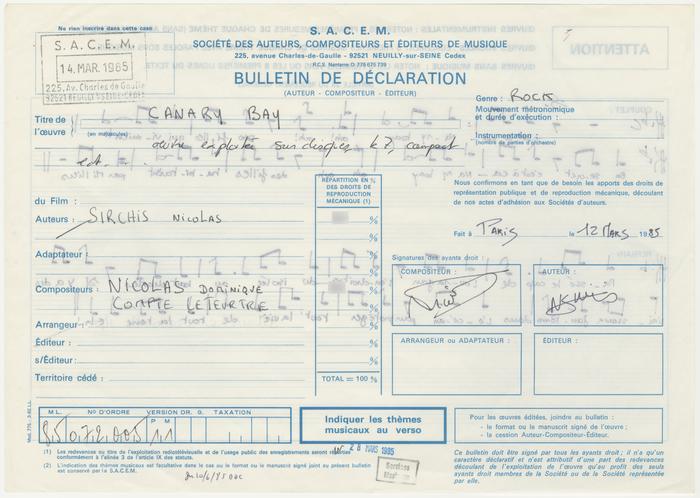 Ne rien inscrire dans cette case
S. A. C. E. M.
14. MAR. 1985
225, Av. Charles de Gaulle
92521 NEUILLY-S/SEINE CEDEX
S. A. C. E. M.
SOCIÉTÉ DES AUTEURS, COMPOSITEURS ET ÉDITEURS DE MUSIQUE
225, avenue Charles-de-Gaulle - 92521 NEUILLY-sur-SEINE Cedex
R.C.S. Nanterre D 775 675 739
BULLETIN DE DÉCLARATION
(AUTEUR - COMPOSITEUR - ÉDITEUR)
Titre de l'œuvre (en majuscules) CANARY BAY
Genre : ROCK
Mouvement métronomique
et durée d'exécution :
Instrumentation :
(nombre de parties d'orchestre)
œuvre exploitée sur disques k7, compact
ect - -
Nous confirmons en tant que de besoin les apports des droits de
représentation publique et de reproduction mécanique, découlant
de nos actes d'adhésion aux Sociétés d'auteurs.
Fait à PARIS le 12 MARS 1985
RÉPARTITION EN %
DES DROITS DE
REPRODUCTION
MÉCANIQUE (1)
du Film :
Auteurs : SIRCHIS NICOLAS %
%
Adaptateur : %
Compositeurs : NICOLAS DOMINIQUE %
COMPTE LETEURTRE %
Arrangeur : %
Éditeur : %
s/Éditeur : %
Territoire cédé : TOTAL = 100 %
Signatures des ayants droit
COMPOSITEUR :
AUTEUR :
ARRANGEUR ou ADAPTATEUR :
ÉDITEUR :
M L. N° D'ORDRE VERSION DR. G. TAXATION
P M
85 072 005 11
Indiquer les thèmes
musicaux au verso
28 MARS 1985
Pour les œuvres éditées, joindre au bulletin :
- le format ou le manuscrit signé de l'œuvre ;
- la cession Auteur-Compositeur-Éditeur.
(1) Les redevances au titre de l'exploitation radiotélévisuelle et de l'usage public des enregistrements seront réparties
conformément à l'alinéa 3 de l'article IX des statuts.
(2) L'indication des thèmes musicaux est facultative dans le cas où le format ou le manuscrit signé joint au présent bulletin
est conservé par la S.A.C.E.M.
Ce bulletin doit être signé par tous les ayants droit ; il n'a qu'un
caractère déclaratif et n'est attributif d'une part des redevances
découlant de l'exploitation de l'œuvre qu'au profit des seuls
ayants droit membres de la Société ou de la Société représentée
par elle.